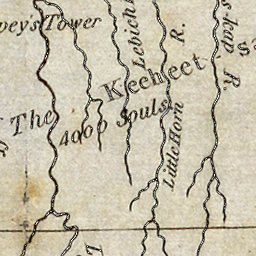 pey's Tower
Lebich
R.
Keeheet
The
4000 Souls
Little Horn
R.